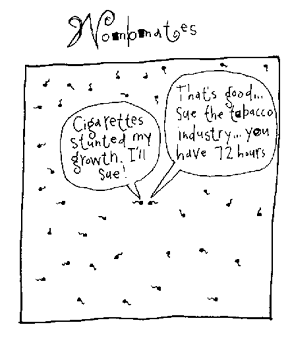 Wombmates
Cigarettes
stunted my
growth. I'll
sue!
That's good...
Sue the tobacco
industry... you
have 72 hours